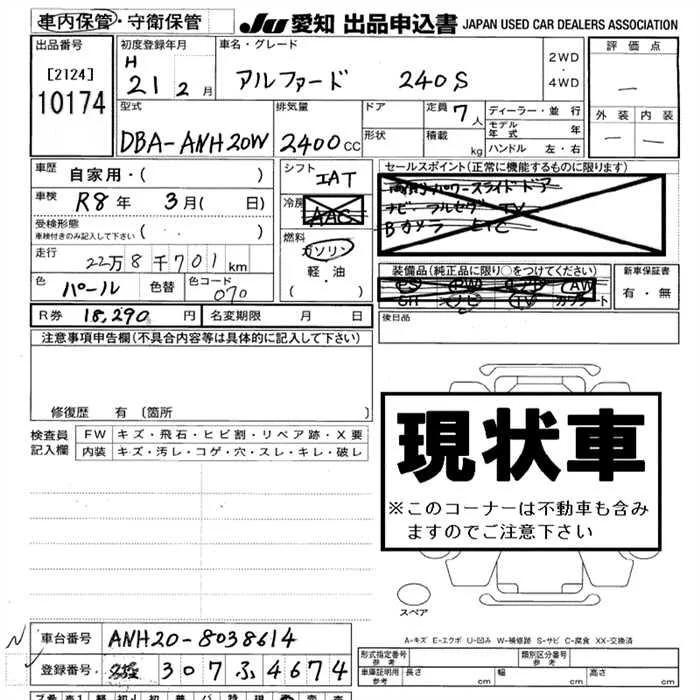 車内保管・守衛保管
JU 愛知 出品申込書 JAPAN USED CAR DEALERS ASSOCIATION
出品番号
[2124]
10174
初度登録年月
H
21 2月
車名・グレード
アルファード 240S
2WD
・
4WD
評価点
—
外装 内装
— —
型式
DBA-ANH20W
排気量
2400cc
ドア
形状
定員 7人
積載 kg
ディーラー・並行
モデル年式 年
ハンドル 左・右
車歴 自家用・( )
車検 R8年 3月( 日)
受検形態
車検付きのみ記入して下さい ( )
走行 22万8千701km
色 パール
色替
色コード 070
シフト
IAT
冷房
AAC
燃料
ガソリン
軽・油
( ・ )
セールスポイント(正常に機能するものに限ります)
両側パワースライドドア
ナビ フルセグTV
Bカメラ ETC
装備品(純正品に限り○をつけてください)
PS PW エアB AW
SR ナビ TV カワシート
新車保証書
有・無
R券 18,290円
名変期限 月 日
後日品
注意事項申告欄(不具合内容等は具体的に記入して下さい)
修復歴 有〔箇所 〕
検査員
記入欄
FW キズ・飛石・ヒビ割・リペア跡・X要
内装 キズ・汚レ・コゲ・穴・スレ・キレ・破レ
現状車
※このコーナーは不動車も含み
ますのでご注意下さい
スペア
A-キズ E-エクボ U-凹み W-補修跡 S-サビ C-腐食 XX-交換済
車台番号 ANH20-8038614
登録番号 307 ふ 4674
形式指定番号
参考
類別区分番号
参考
車庫証明用
参考
長さ cm 幅 cm 高さ cm